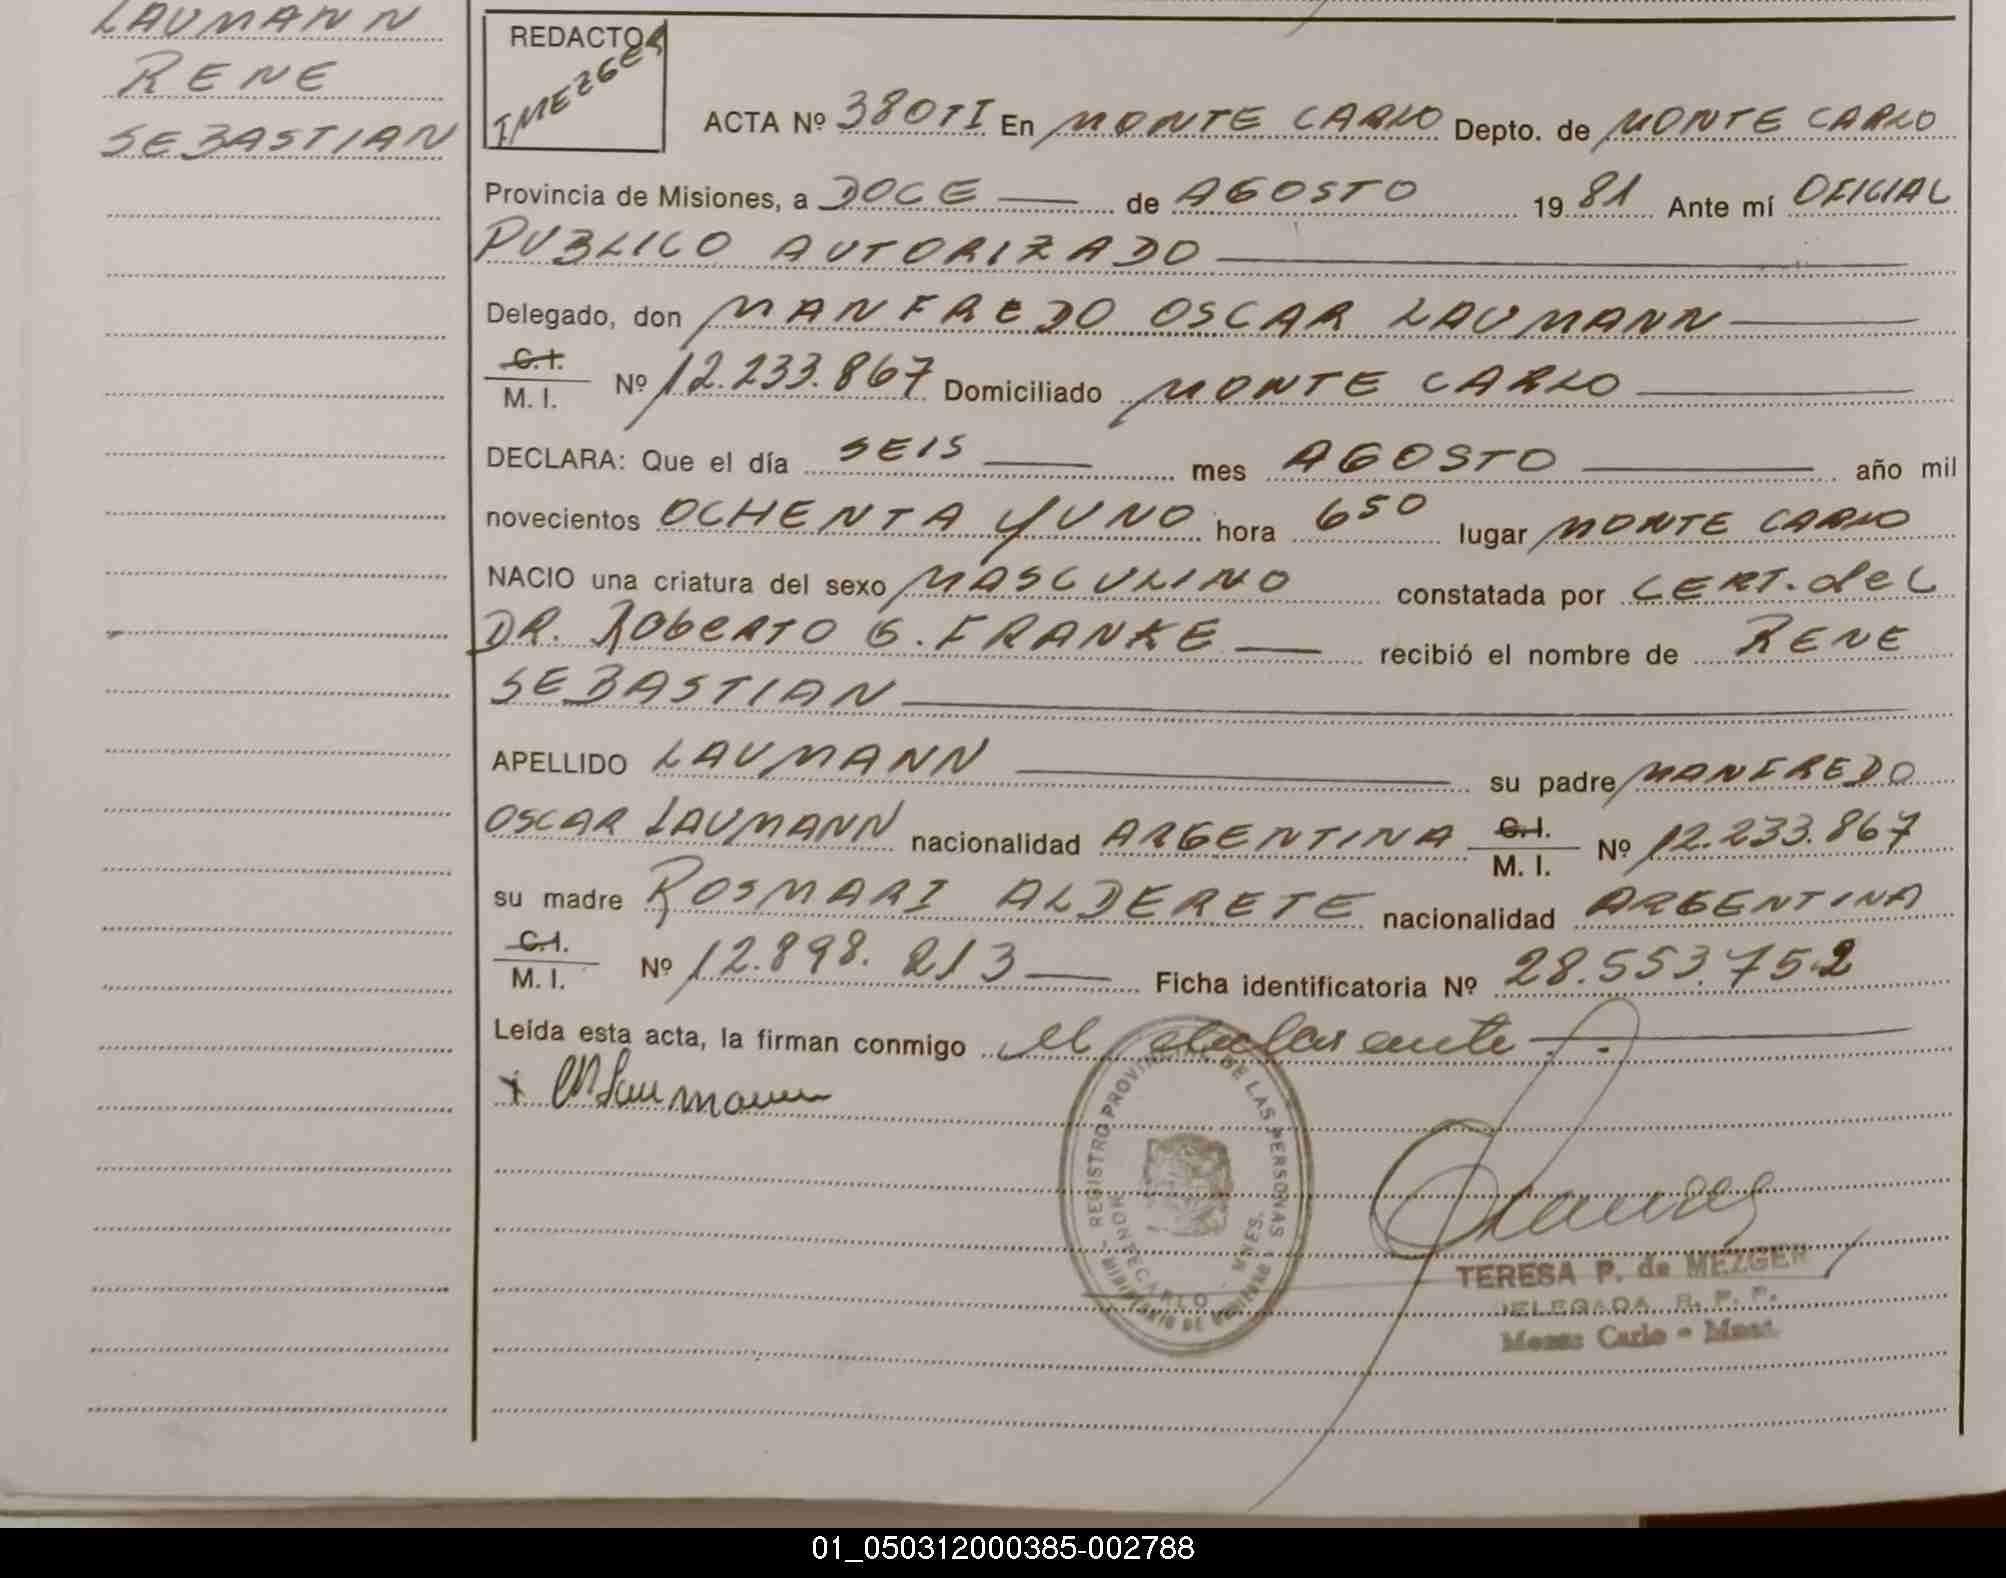 LAUMANN
RENE
SEBASTIAN
REDACTOR
IMEZGER
ACTA Nº 380TI En MONTE CARLO Depto. de MONTE CARLO
Provincia de Misiones, a DOCE de AGOSTO 1981 Ante mí OFICIAL
PUBLICO AUTORIZADO
Delegado, don MANFREDO OSCAR LAUMANN
C.I.
M. I. Nº 12.233.867 Domiciliado MONTE CARLO
DECLARA: Que el día SEIS mes AGOSTO año mil
novecientos OCHENTA Y UNO hora 6 50 lugar MONTE CARLO
NACIO una criatura del sexo MASCULINO constatada por CERT. del
DR. ROBERTO G. FRANKE recibió el nombre de RENE
SEBASTIAN
APELLIDO LAUMANN su padre MANFREDO
OSCAR LAUMANN nacionalidad ARGENTINA C.I. M. I. Nº 12.233.867
su madre ROSMARI ALDERETE nacionalidad ARGENTINA
C.I.
M. I. Nº 12.898.213 Ficha identificatoria Nº 28.553.752
Leída esta acta, la firman conmigo el declarante
x MLaumann
REGISTRO PROVINCIAL DE LAS PERSONAS
MONTECARLO - MNES.
MINISTERIO DE GOBIERNO
TERESA P. de MEZGER
DELEGADA R. P. P.
Monte Carlo - Mnes.
01_050312000385-002788